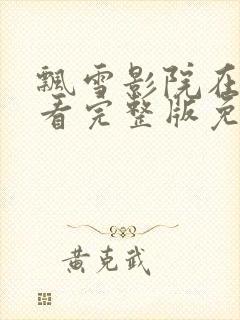 飘雪影院在
看完整版免
黄克武